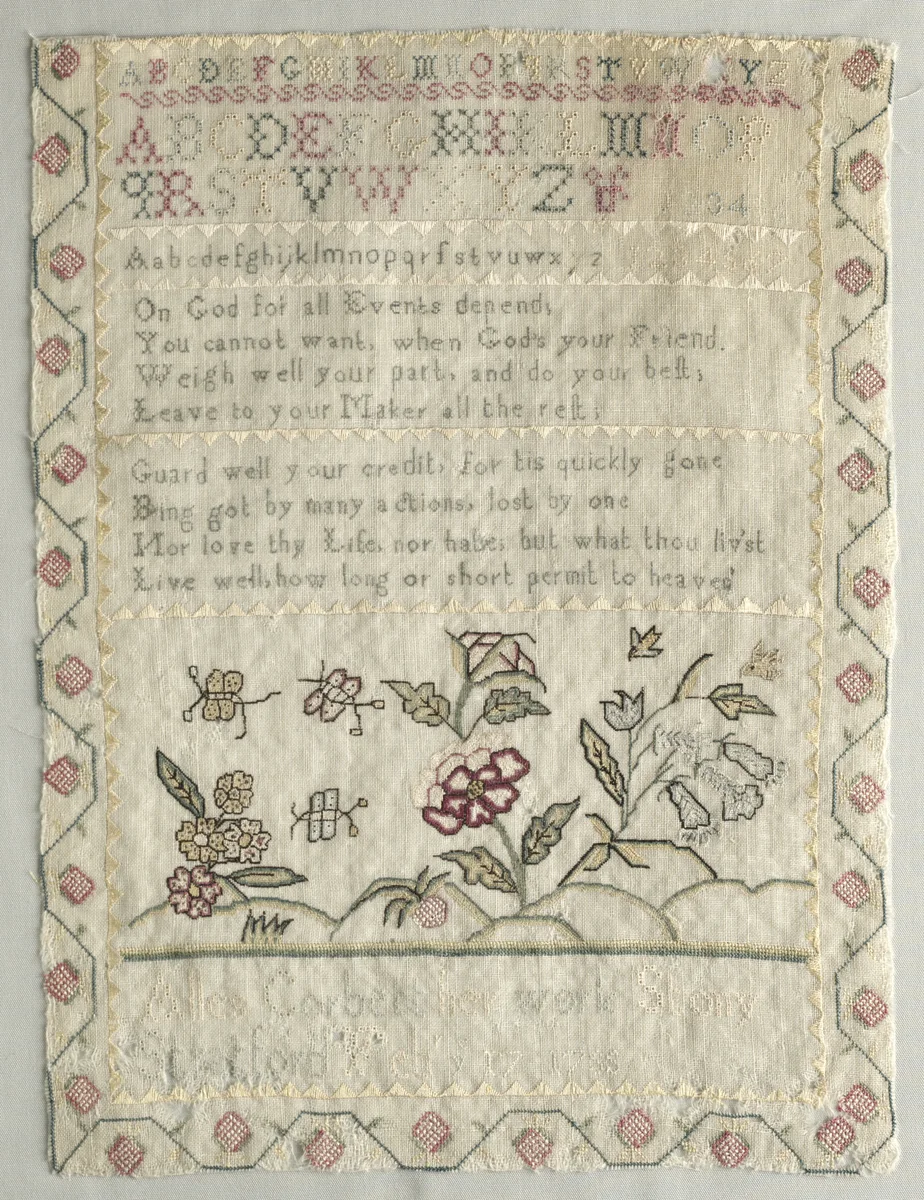 ABCDEFGHIKLMNOPQRSTVWXYZ
ABCDEFGHIKLMNOP
qRSTVWXYZ 34
Aabcdefghijklmnopqrſstvuwxyz
On God for all Events depend;
You cannot want, when God's your Friend.
Weigh well your part, and do your beſt;
Leave to your Maker all the reſt;
Guard well your credit, for tis quickly gone
Bing got by many actions, lost by one
Nor love thy Life, nor hate, but what thou liv'st
Live well, how long or short permit to heaven
Alice Corbett her work Stony
Stratford 17 1788